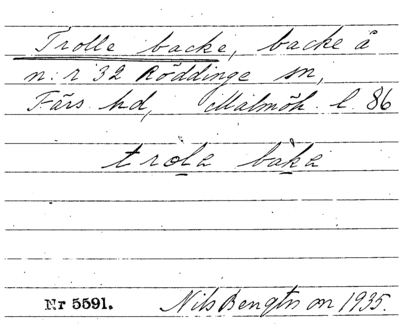 Trolle backe, backe å
n:r 32 Röddinge sn,
Färs hd, Malmöh. l. 86
tròla bàka
Nr 5591. Nils Bengtsson 1935.